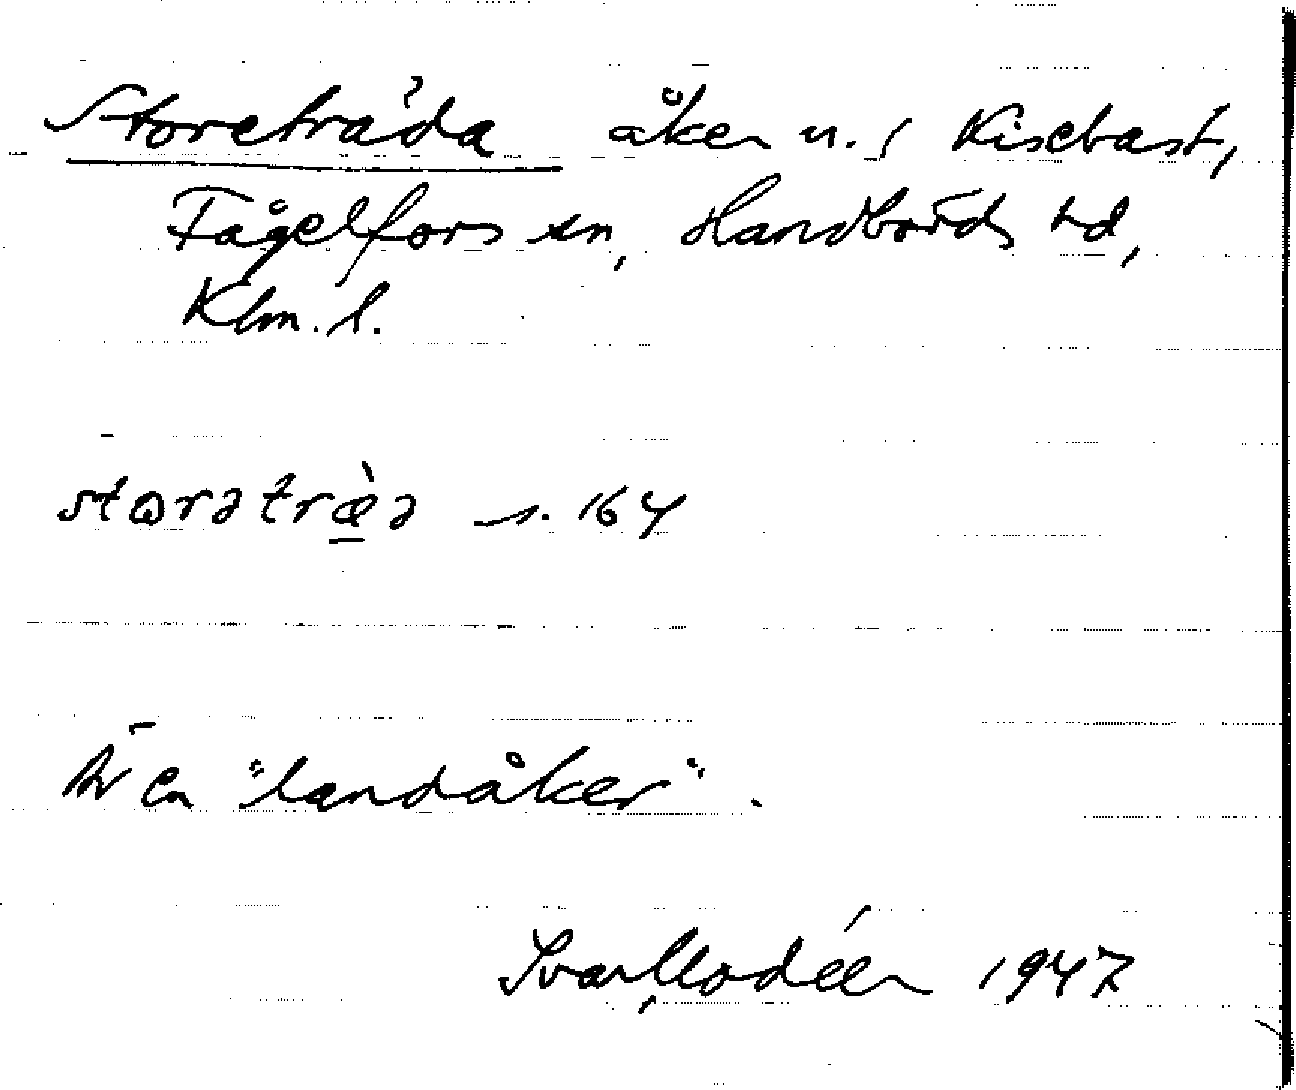 Storeträda åker u. Kisebast,
Fågelfors sn, Handbörds hd,
Klm. l.
storətræ̀ə s. 164
Är en "landåker".
Ivar Modéer 1947